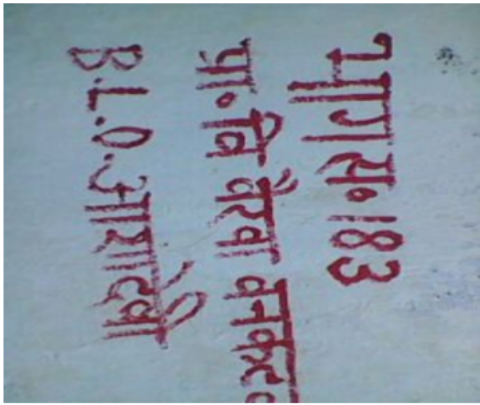 भाग स० 183
प्रा० वि वैरवा
B.L.O. आशा देवी